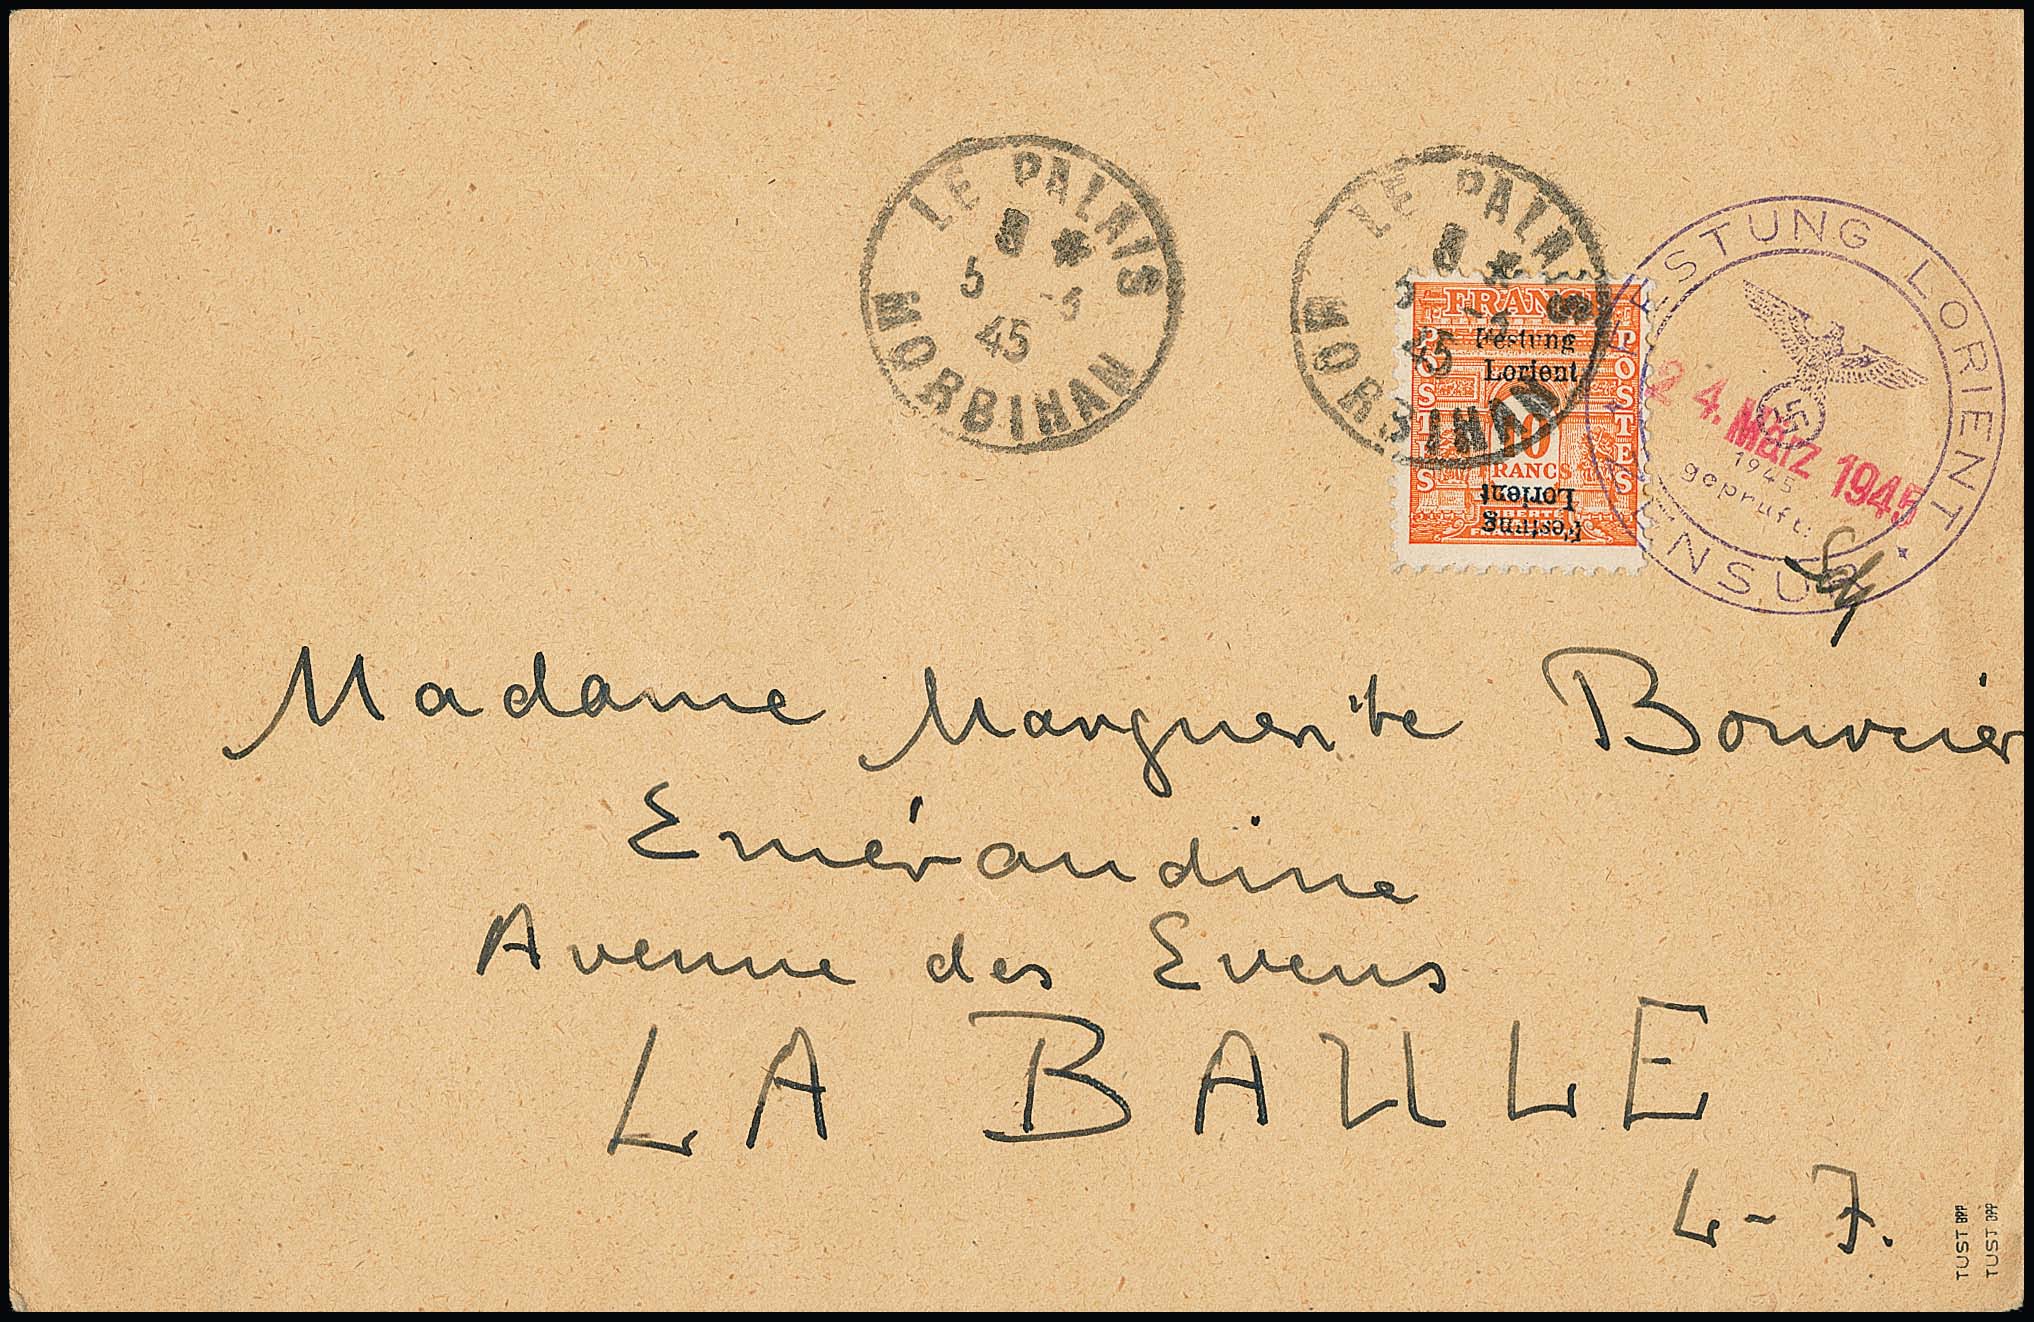 LE PALAIS
8 *
5 -3
45
MORBIHAN
LE PALAIS
8 *
5 -3
45
MORBIHAN
FRANCE
POSTES
POSTES
Festung
Lorient
10
FRANCS
Festung
Lorient
LIBERTÉ
FESTUNG LORIENT
ZENSUR
24. März 1945
1945
geprüft:
Madame Marguerite Bouvier
Emérandine
Avenue des Evens
LA BAULE
L-I.
TUST BPP
TUST BPP